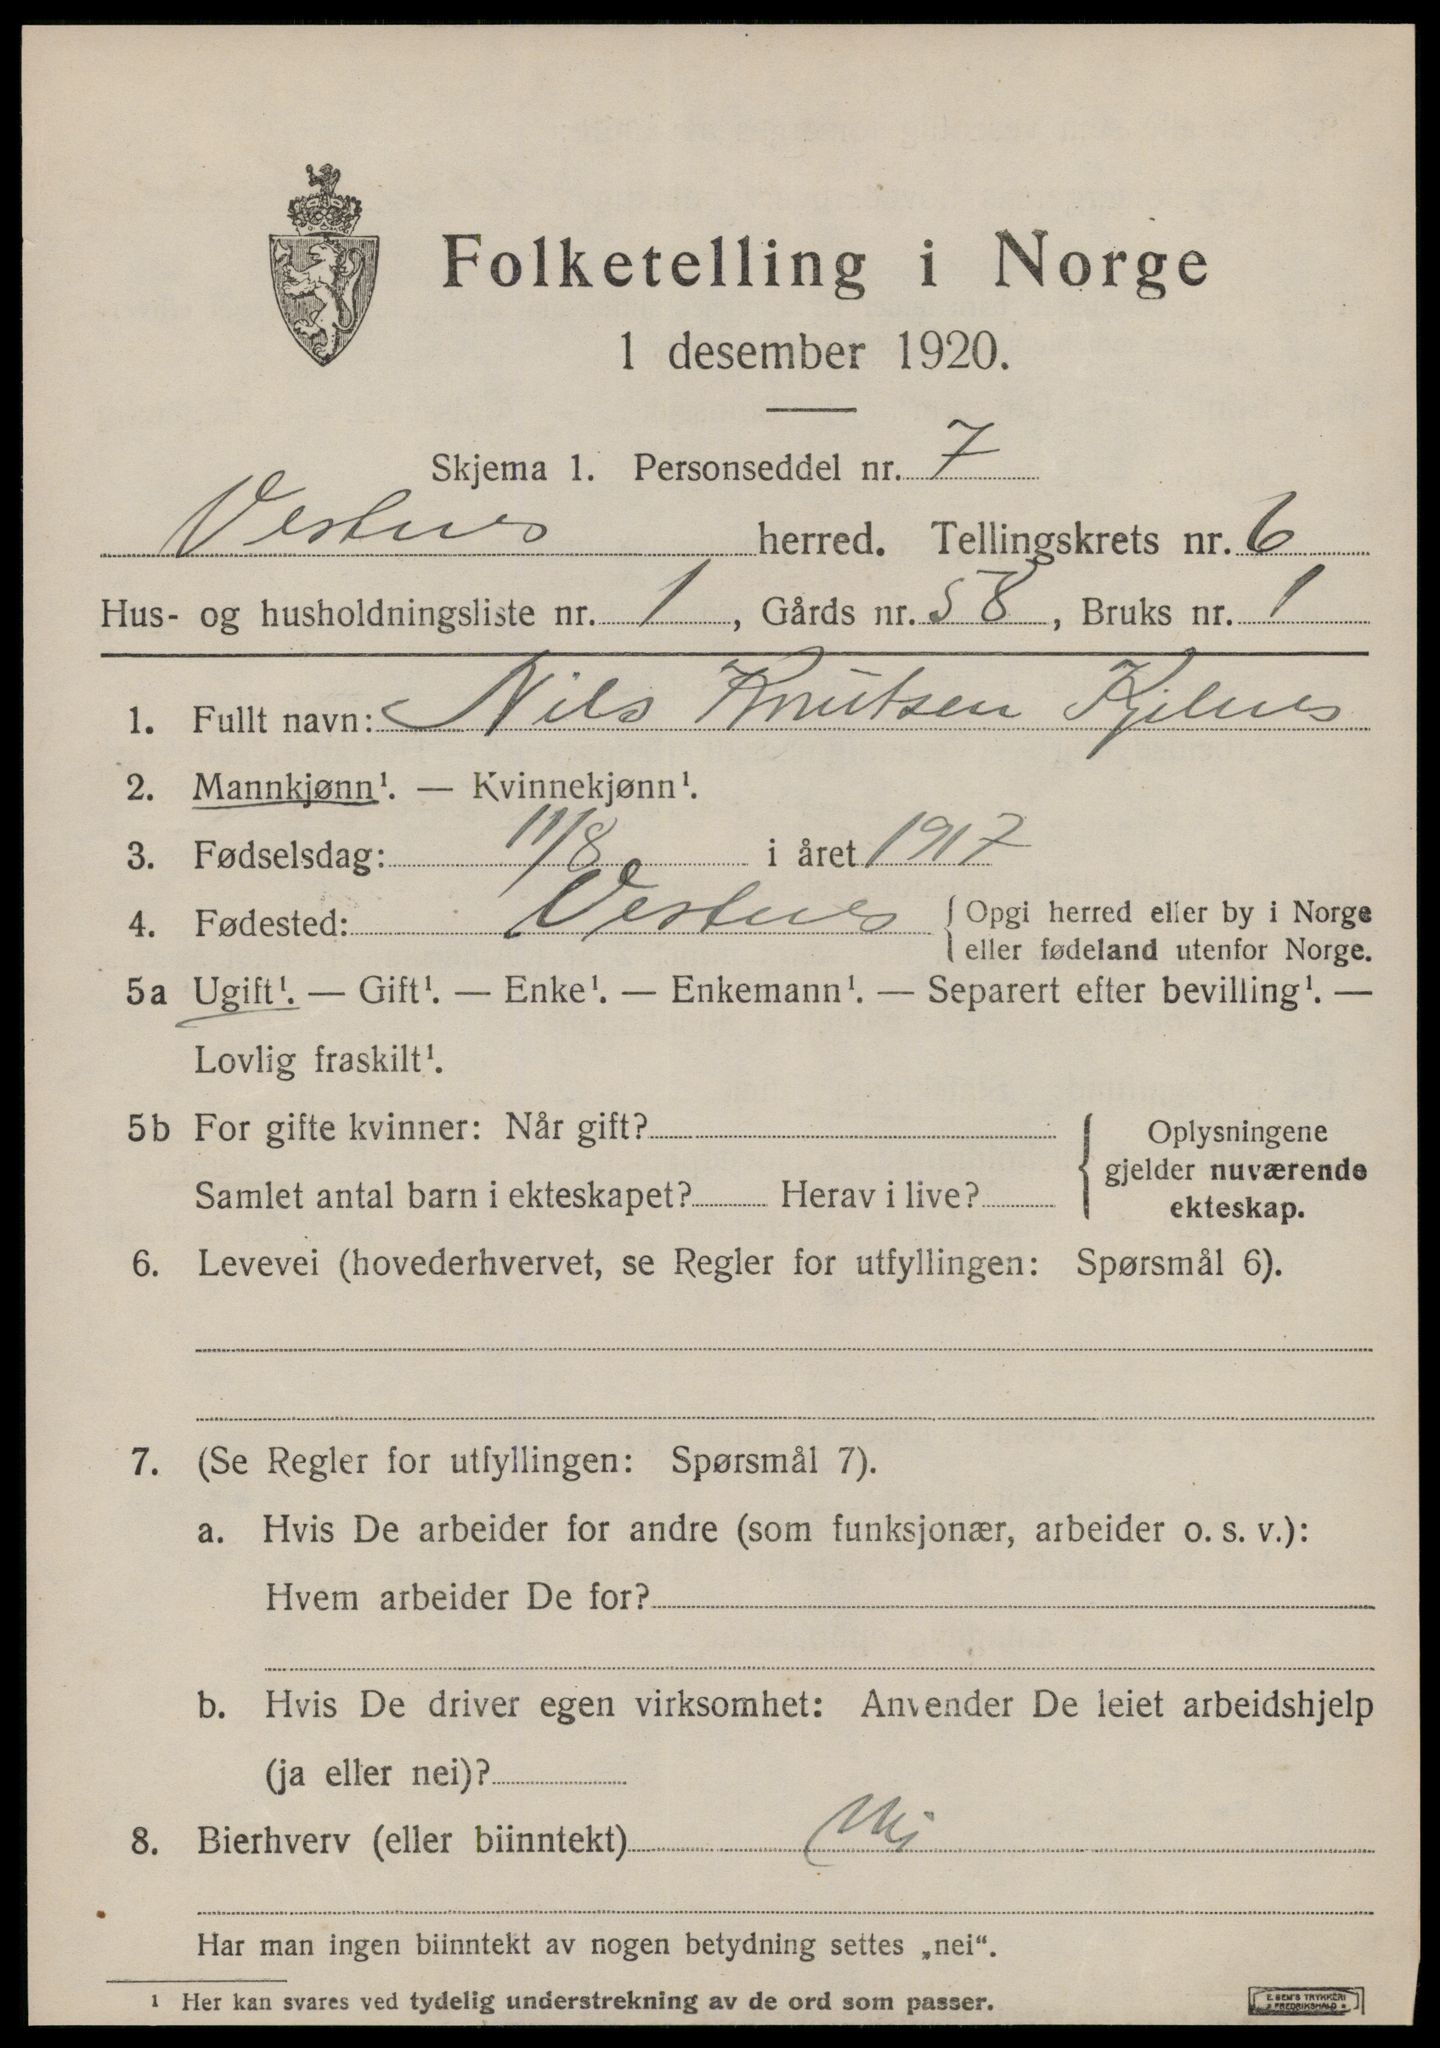 Folketelling i Norge
1 desember 1920.
Skjema 1. Personseddel nr. 7
Vestnes herred. Tellingskrets nr. 6
Hus- og husholdningsliste nr. 1, Gårds nr. 58, Bruks nr. 1
1. Fullt navn: Nils Knutsen Kjelnes
2. Mannkjønn¹. — Kvinnekjønn¹.
3. Fødselsdag: 11/8 i året 1917
4. Fødested: Vestnes { Opgi herred eller by i Norge
eller fødeland utenfor Norge.
5a Ugift¹. — Gift¹. — Enke¹. — Enkemann¹. — Separert efter bevilling¹. —
Lovlig fraskilt¹.
5b For gifte kvinner: Når gift?
Samlet antal barn i ekteskapet? Herav i live?
{ Oplysningene
gjelder nuværende
ekteskap.
6. Levevei (hovederhvervet, se Regler for utfyllingen: Spørsmål 6).
7. (Se Regler for utfyllingen: Spørsmål 7).
a. Hvis De arbeider for andre (som funksjonær, arbeider o. s. v.):
Hvem arbeider De for?
b. Hvis De driver egen virksomhet: Anvender De leiet arbeidshjelp
(ja eller nei)?
8. Bierhverv (eller biinntekt) Nei
Har man ingen biinntekt av nogen betydning settes „nei“.
¹ Her kan svares ved tydelig understrekning av de ord som passer.
E. SEM'S TRYKKERI
FREDRIKSHALD